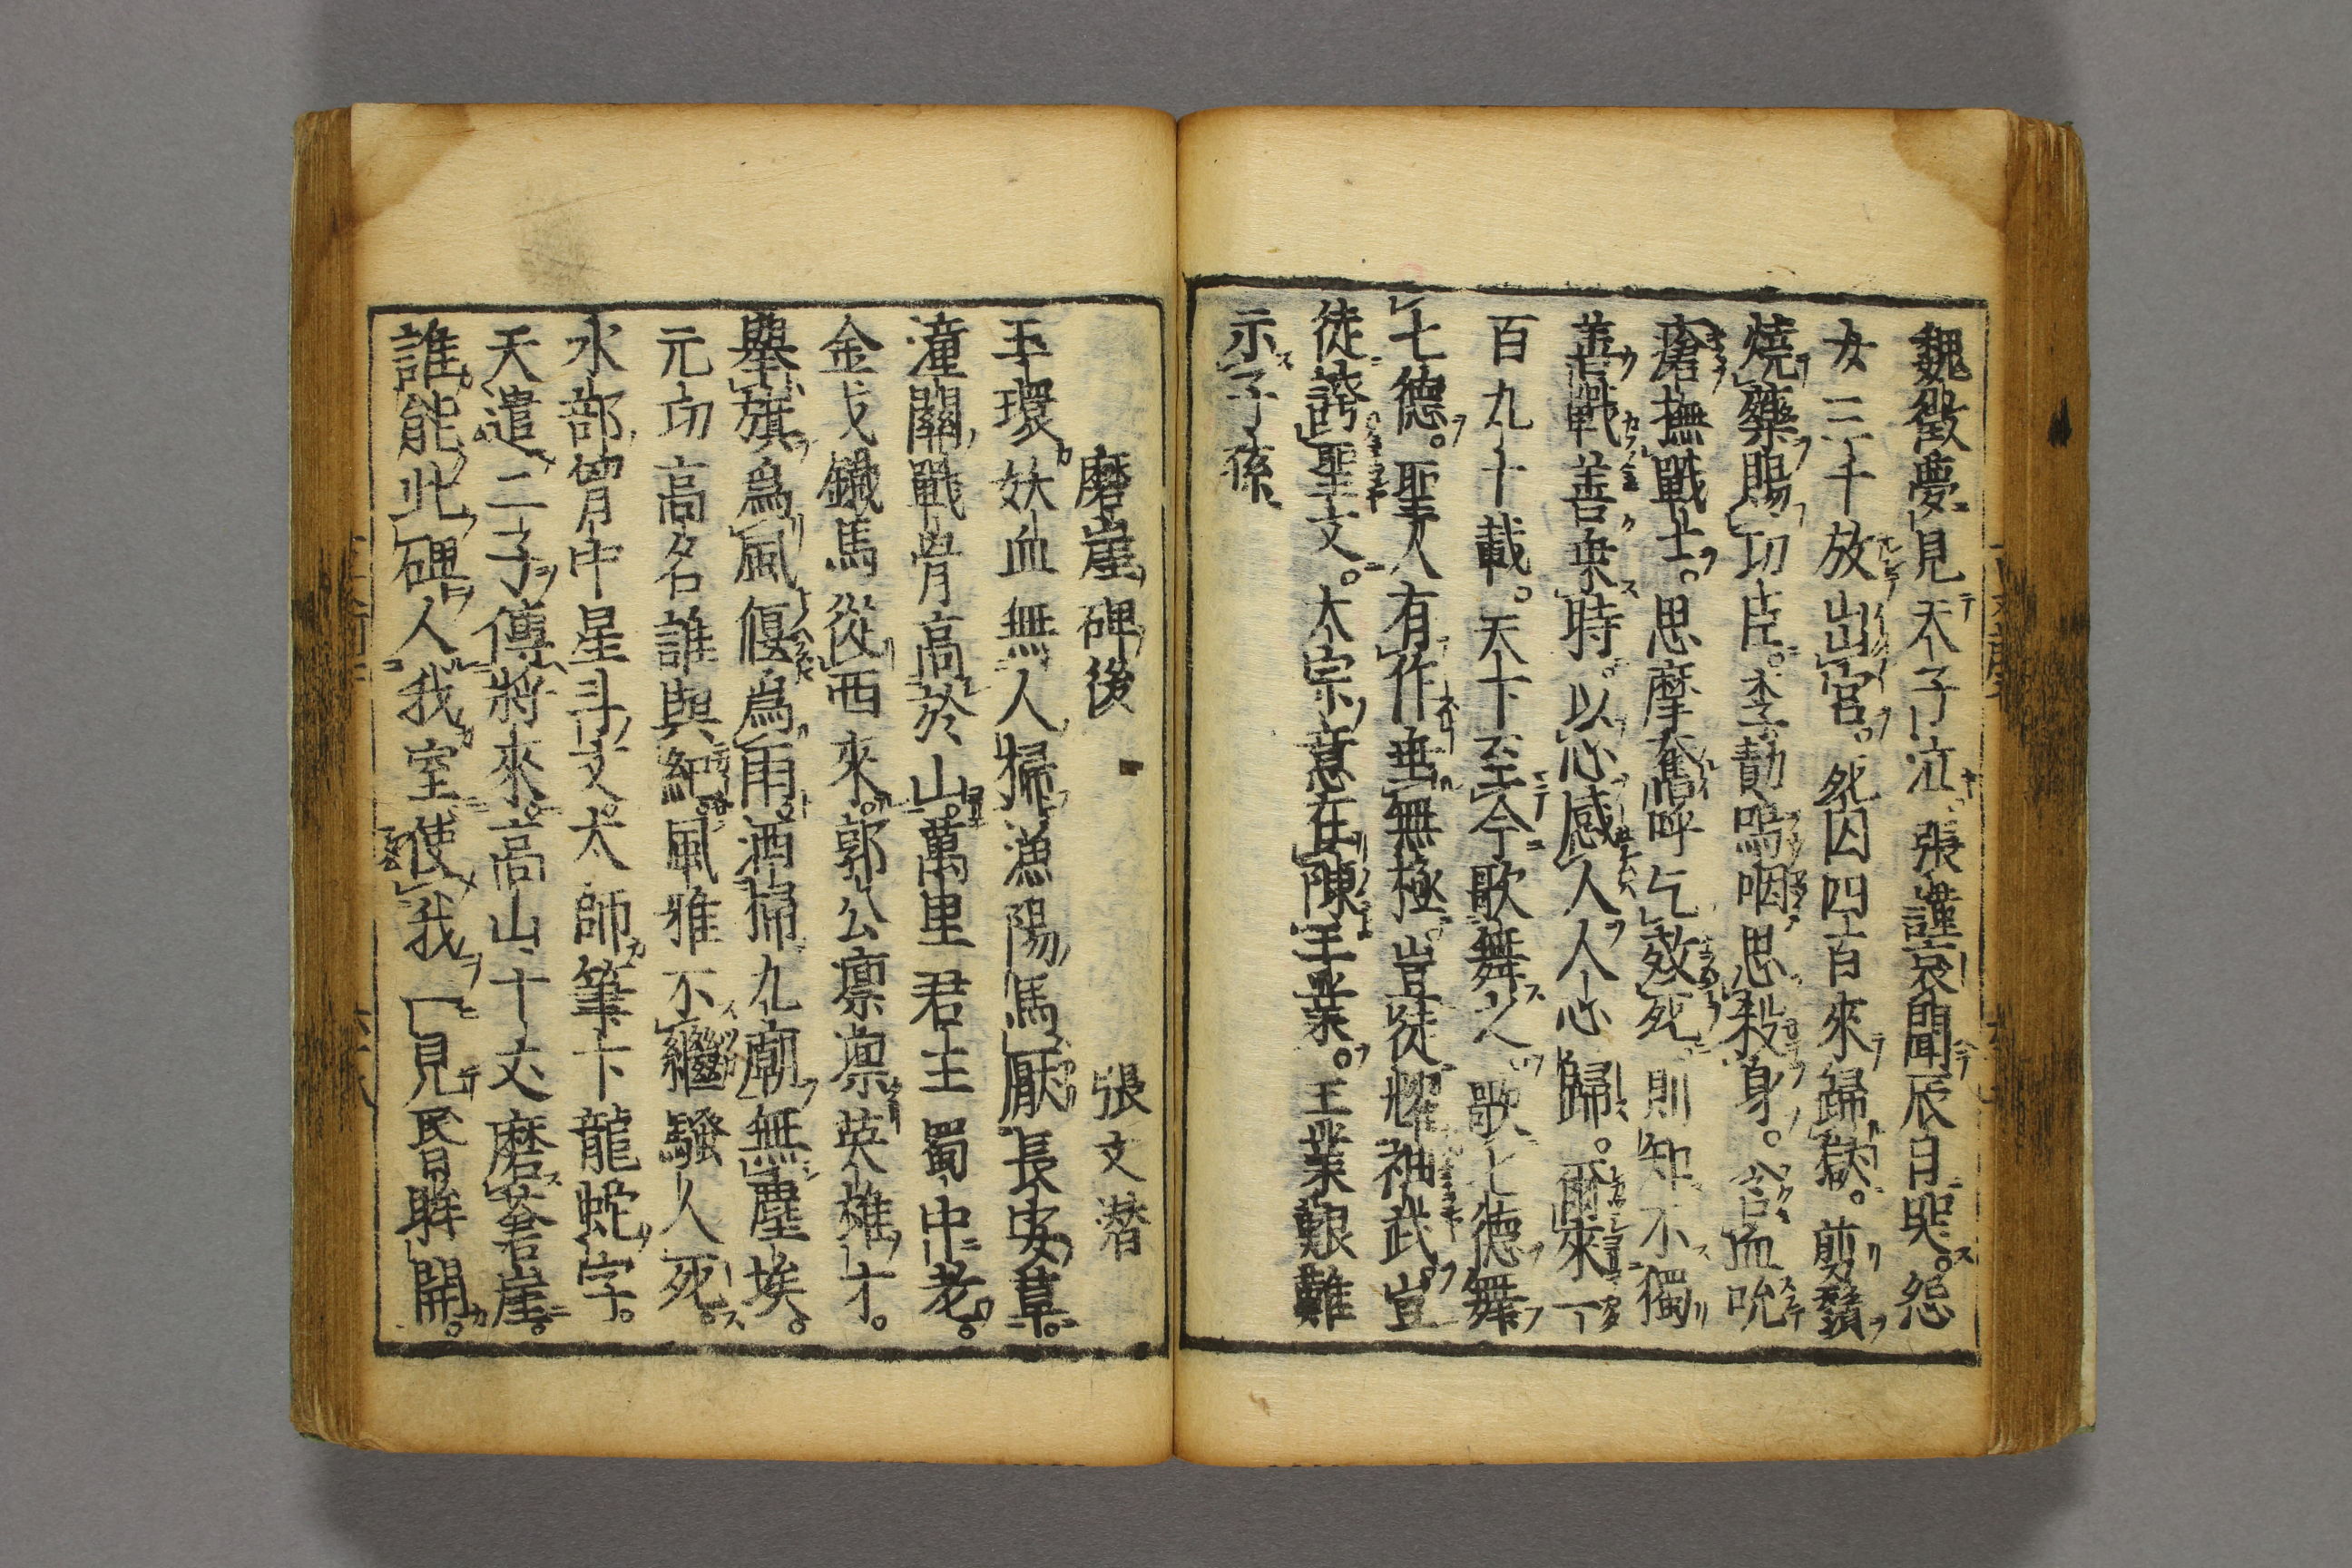 魏徵夢見天子泣。張謹哀聞辰日哭。怨
女三千放出宮。死囚四百來歸獄。剪鬚
燒藥賜功臣。李勣嗚咽思殺身。含血吮
瘡撫戰士。思摩奮呼乞效死。則知不獨
善戰善乘時。以心感人人心歸。爾來一
百九十載。天下至今歌舞之。歌七德舞
七德。聖人有作垂無極。豈徒耀神武。豈
徒誇聖文。太宗意在陳王業。王業艱難
示子孫
磨崖碑後 張文潛
玉環妖血無人掃漁陽馬厭長安草。
潼關戰骨高於山。萬里君主蜀中老。
金戈鐵馬從西來。郭公凛凛英雄才。
舉旗爲風偃爲雨。洒掃九廟無塵埃。
元功高名誰與紀。風雅不繼騷人死。
水部胷中星斗文。太師筆下龍蛇字。
天遣二子傳將來。高山十丈磨蒼崖。
誰能此碑入我室使我一見昏眸開。